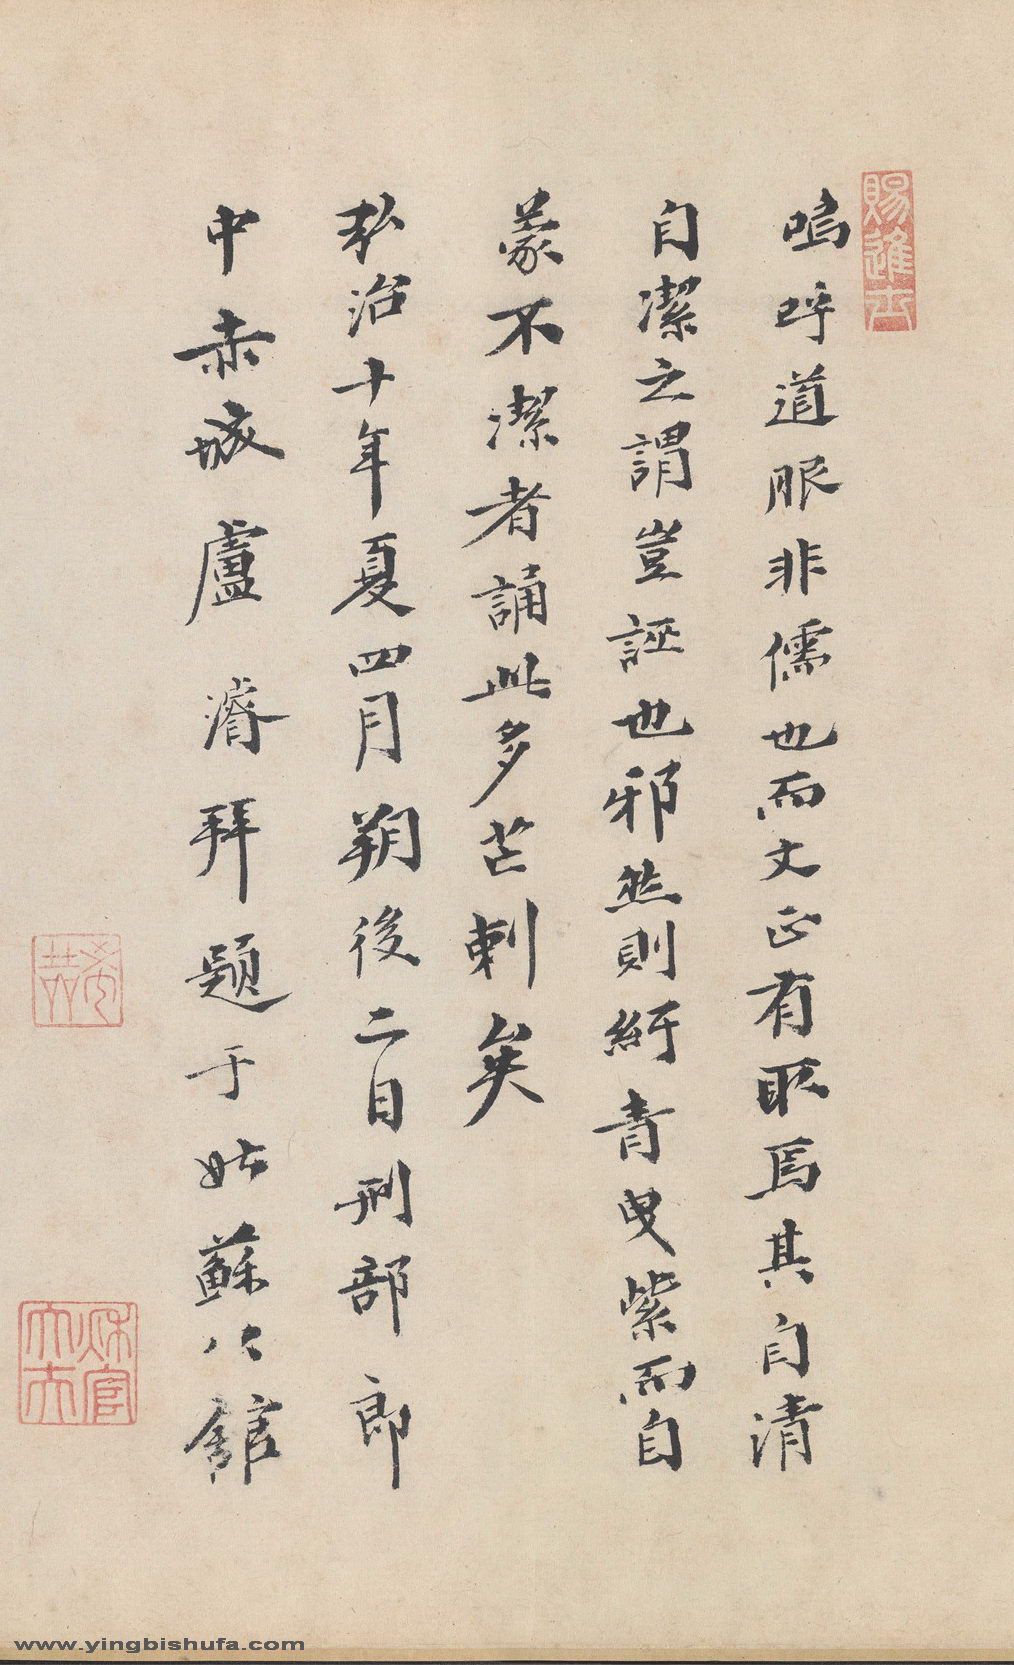 賜進士
嗚呼道服非儒也而文正有取焉其自清
自潔之謂豈誣也邪然則紆青曳紫而自
蒙不潔者誦此多芒刺矣
弘治十年夏四月朔後二日刑部郎
中赤城盧濬拜題于姑蘇公館
希喆
秋官大夫
www.yingbishufa.com